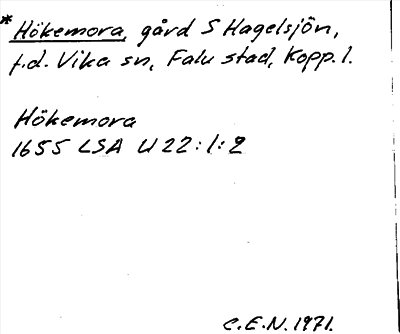 * Hökemora, gård S Hagelsjön,
f.d. Vika sn, Falu stad, Kopp. l.
Hökemora
1655 LSA U 22:1:2
C.E.N. 1971.